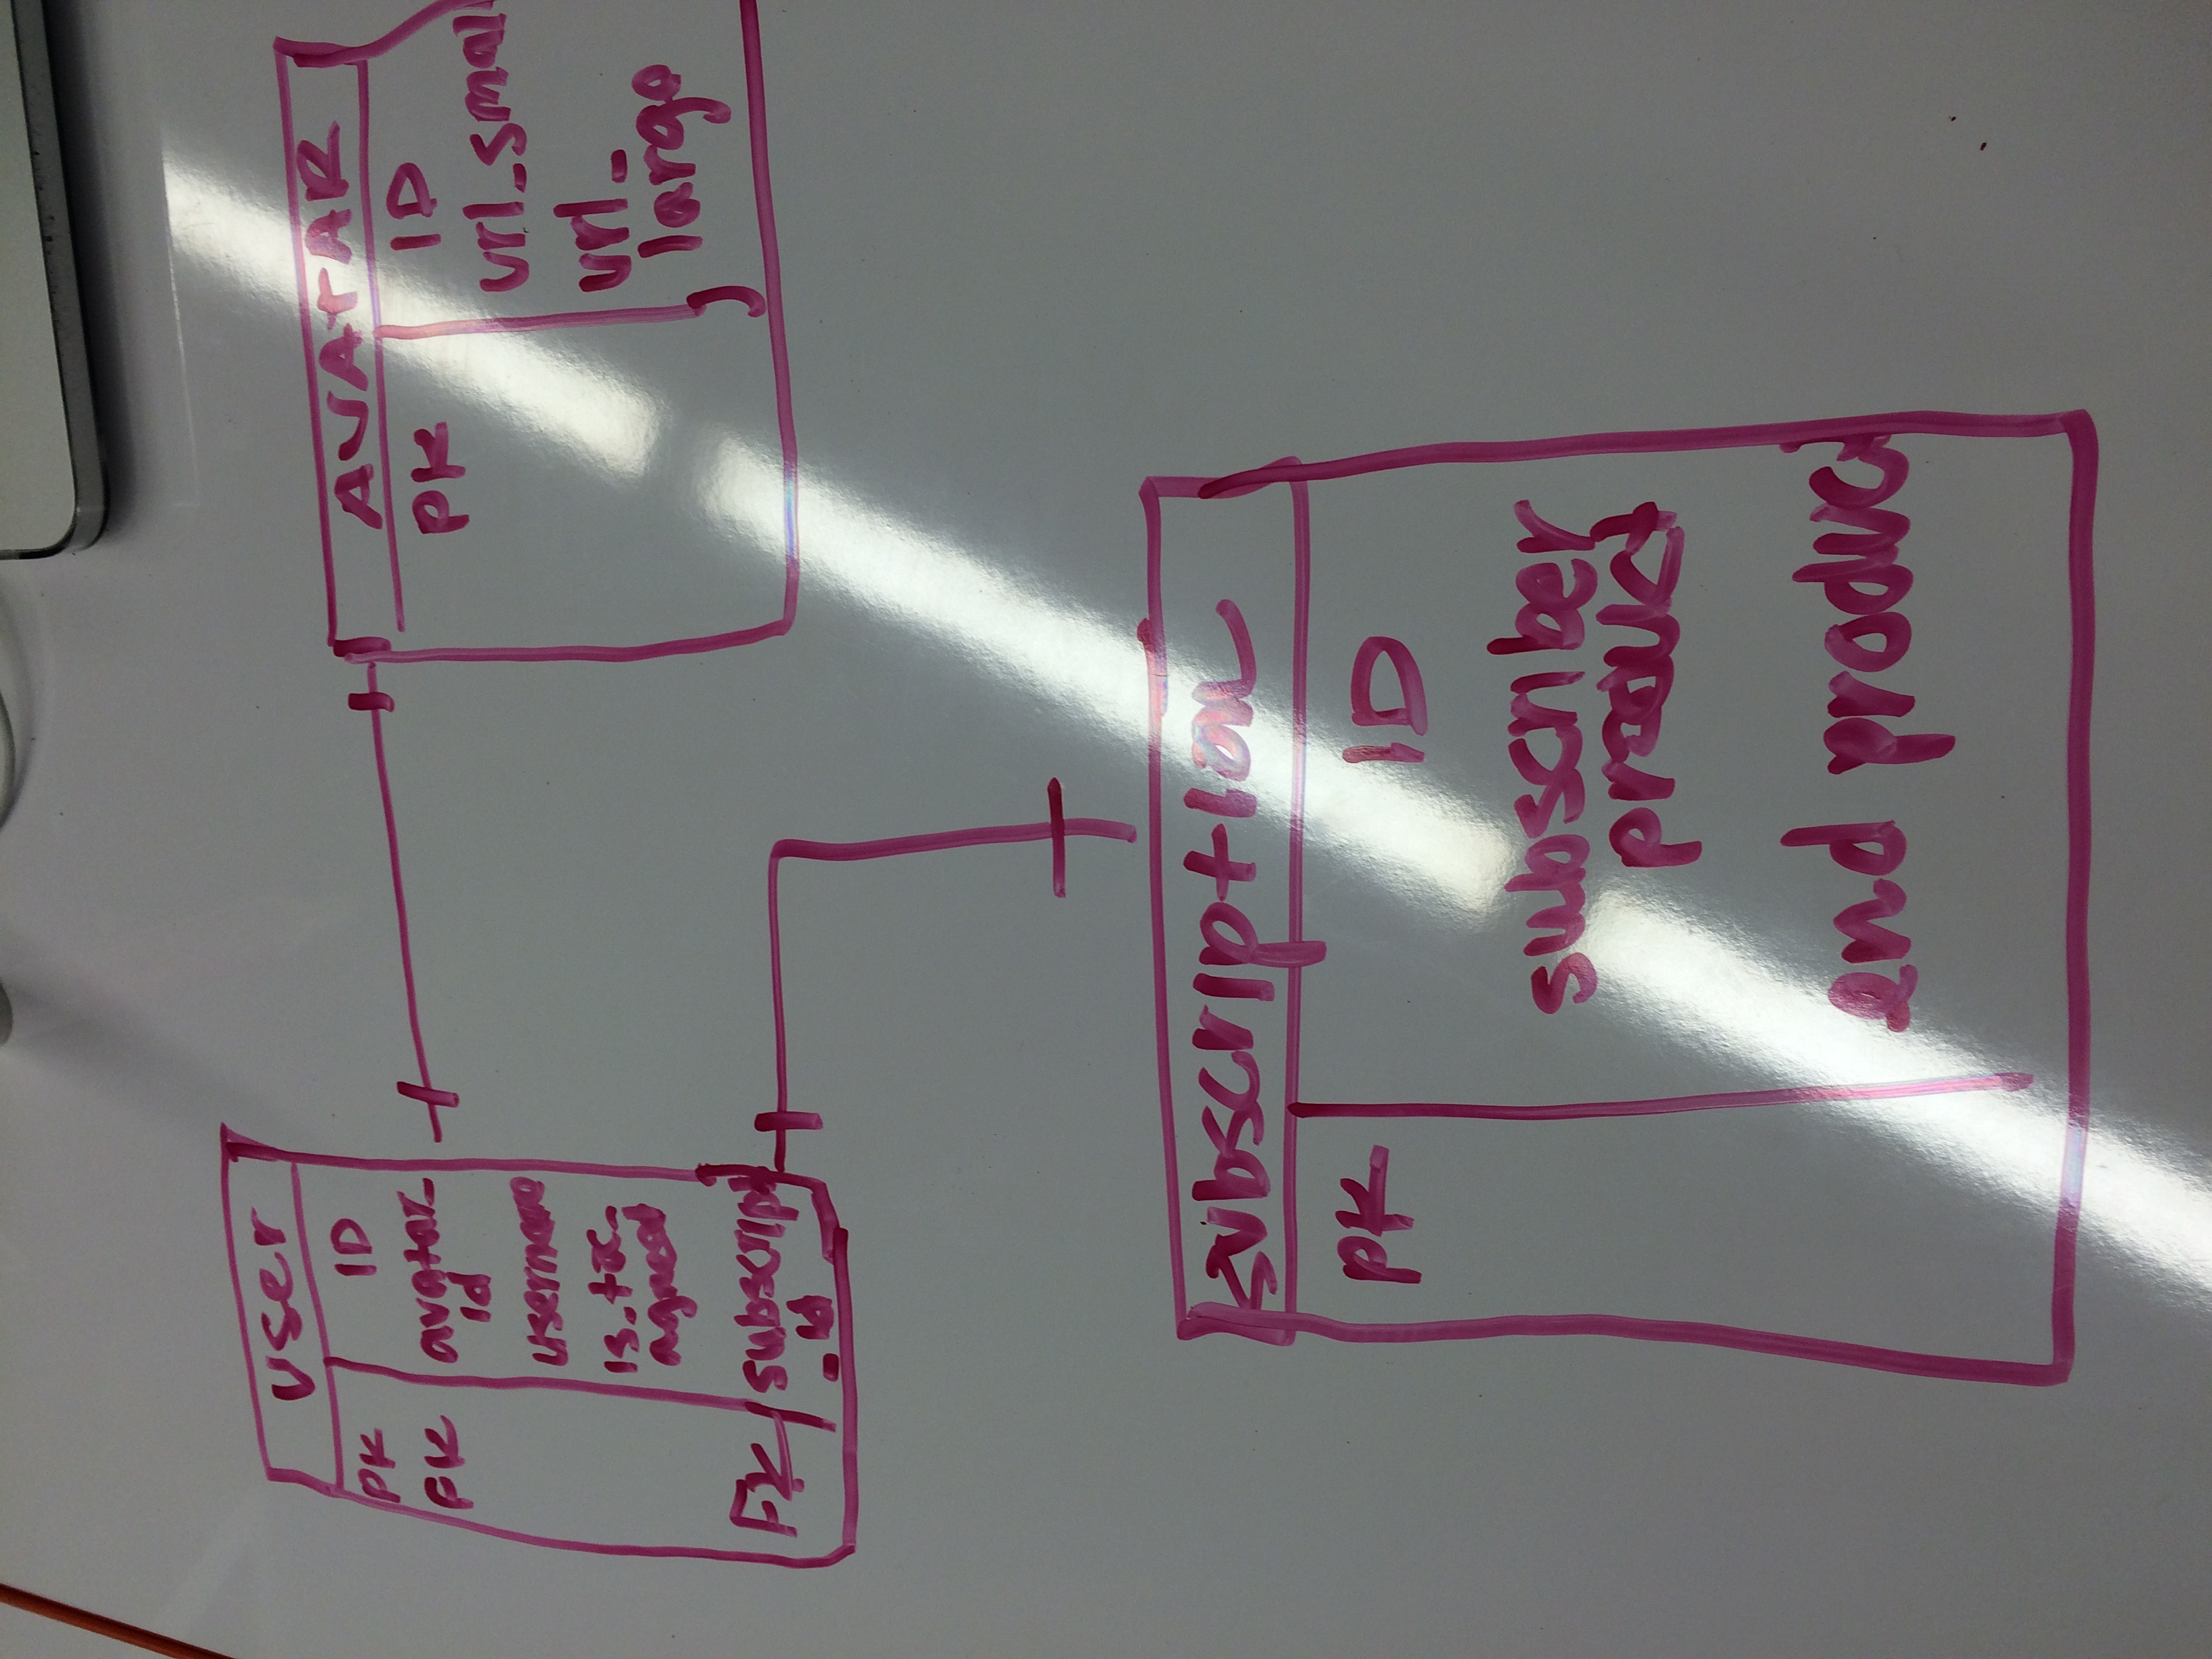 user
PK ID
FK avatar_
id
username
is_tac_
agreed
FK subscript
_id
AVATAR
PK ID
url_small
url_
large
subscription
PK ID
subscriber
product
end product